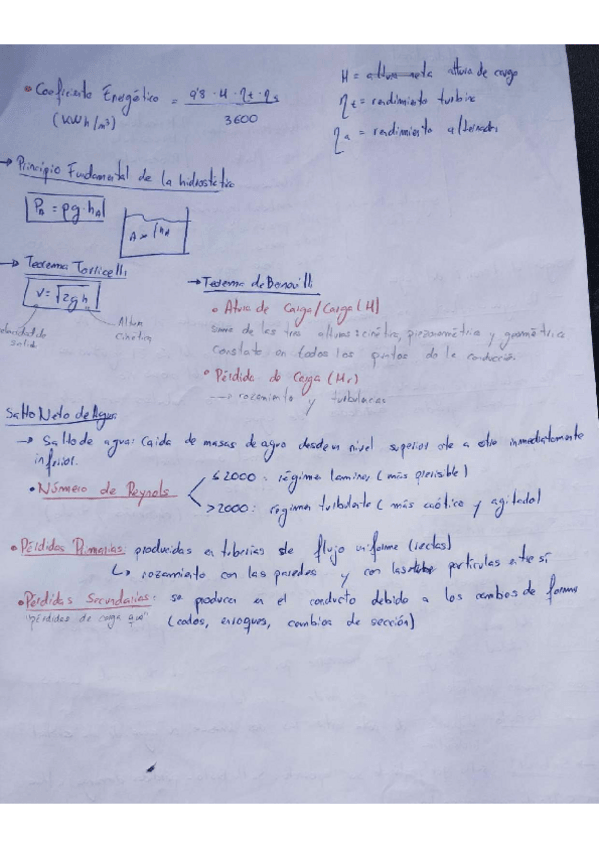 • Coeficiente Energético = 9'8 · H · ηt · ηa / 3600
(KWh/m³)
H = altura neta altura de carga
ηt = rendimiento turbina
ηa = rendimiento alternador
→ Principio Fundamental de la hidrostática
PA = ρg·hA
A hA
→ Teorema Torricelli
V = √2gh
velocidad de salida
Altura cinética
→ Teorema de Bernoulli
• Altura de Carga/Carga (H)
suma de las tres alturas: cinética, piezométrica y geométrica
Constante en todos los puntos de la conducción
• Pérdida de Carga (Hr)
→ rozamiento y turbulencias
Salto Neto de Agua
→ Salto de agua: Caída de masas de agua desde un nivel superior a otro inmediatamente
inferior.
• Número de Reynols
≤2000: régimen laminar (más previsible)
>2000: régimen turbulento (más caótico y agitado)
• Pérdidas Primarias: producidas en tuberías de flujo uniforme (rectas)
↳ rozamiento con las paredes y con las partículas entre sí
• Pérdidas Secundarias: se producen en el conducto debido a los cambios de forma
"pérdidas de carga que" (codos, enroques, cambios de sección)